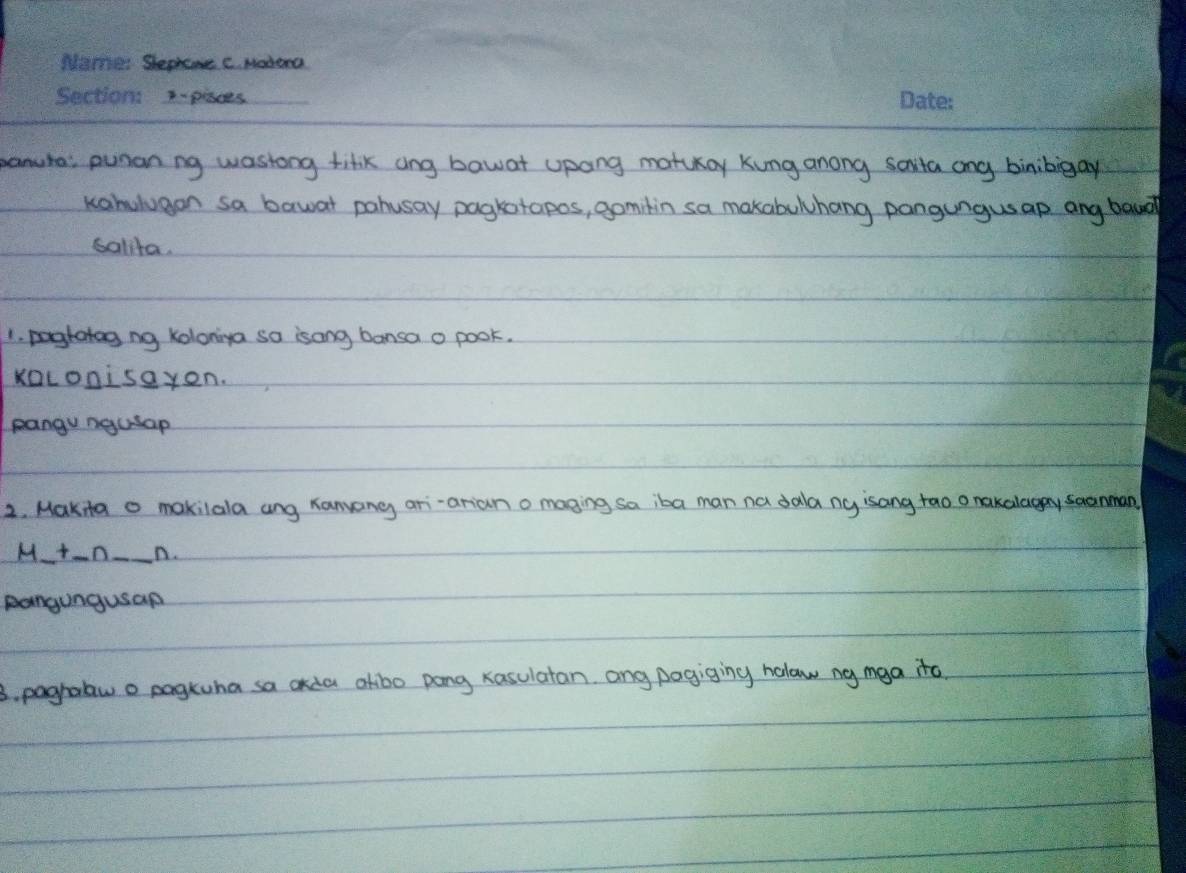 Name: Stephanie C. Madera
Section: 7-pisces
Date:
panuto: punan ng wastong titik ang bawat upang matukoy kung anong salita ang binibigay
kahulugan sa bawat pahusay pagkatapos, gamitin sa makabuluhang pangungusap ang bawat
salita.
1. pagtatag ng koloniya sa isang bansa o pook.
KOLONISAYON.
pangungusap
2. Makita o makilala ang kamang ari-arian o maging sa iba man na dala ng isang tao o nakalagay saanman,
M_t_n___n.
pangungusap
3. paghalaw o pagkuha sa akda atibo pang kasulatan. ang pagiging halaw ng mga ito.